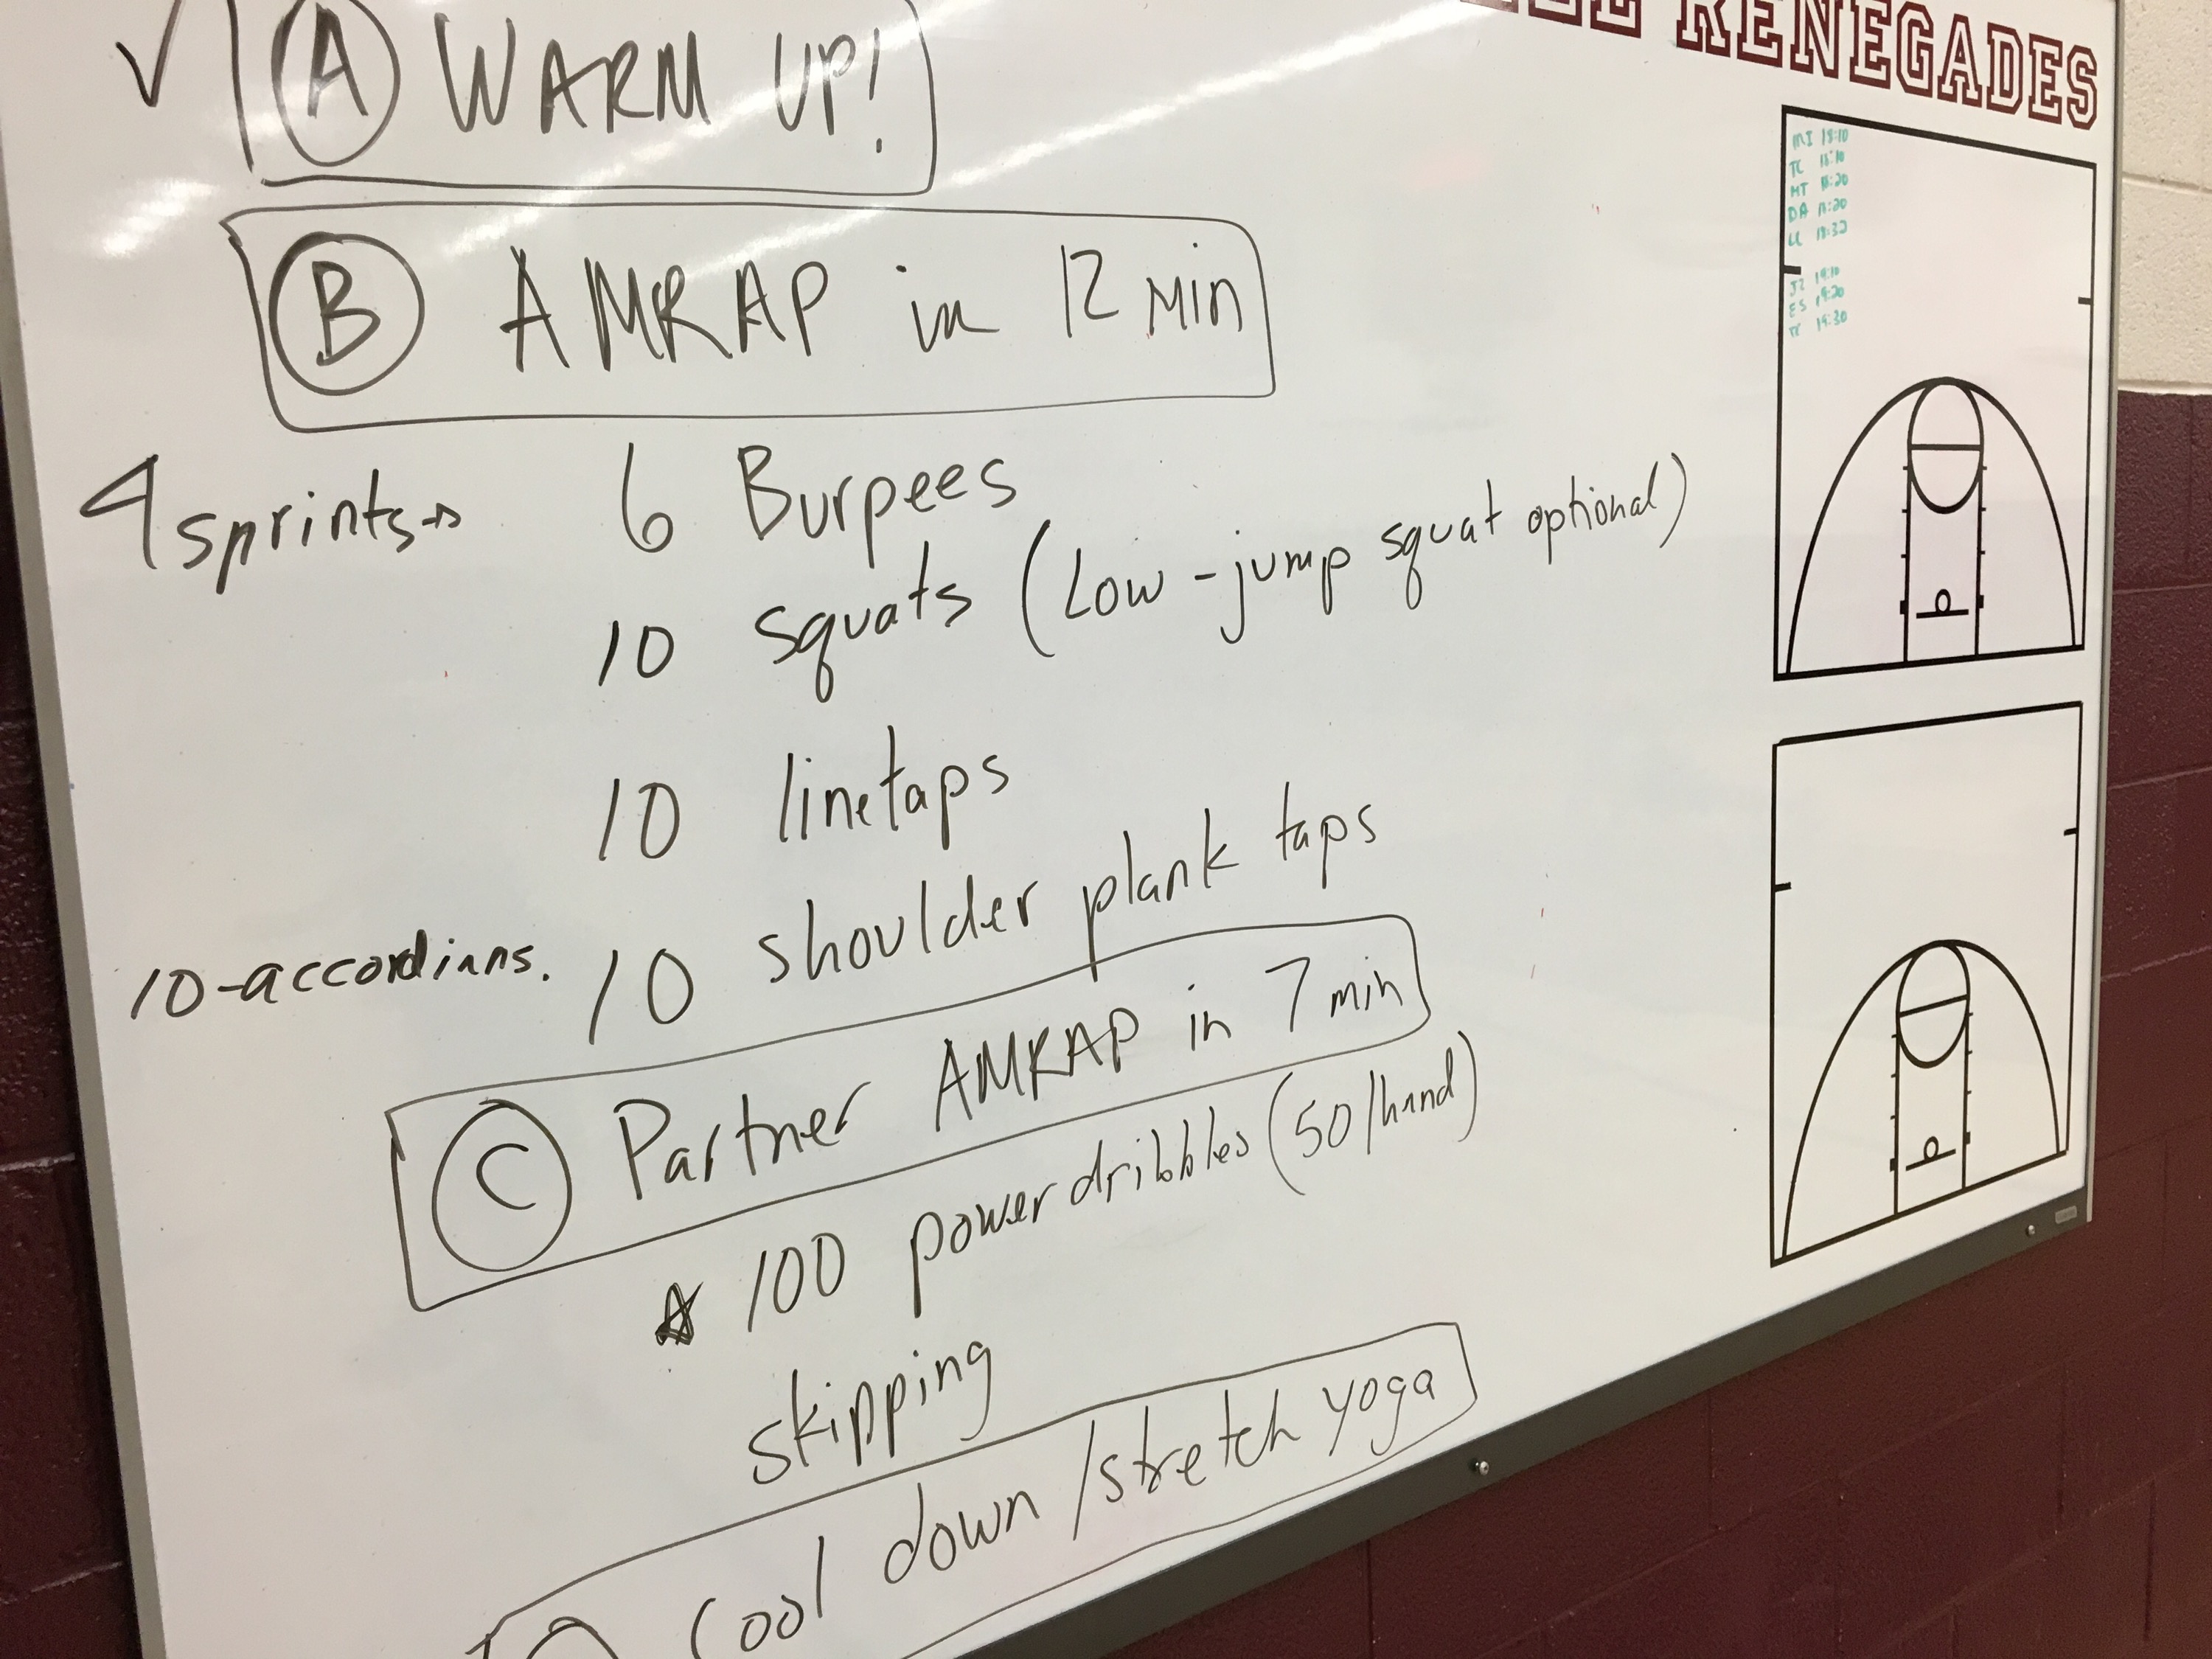 RENEGADES
A WARM UP!
B AMRAP in 12 Min
4 sprints→ 6 Burpees
10 squats (Low-jump squat optional)
10 linetaps
10-accordians. 10 shoulder plank taps
C Partner AMRAP in 7 min
100 power dribbles (50/hand)
skipping
Cool down/stretch yoga
MI 18:10
TC 18:10
MT 18:20
DA 18:20
LL 18:30
JZ 19:10
ES 19:20
19:30